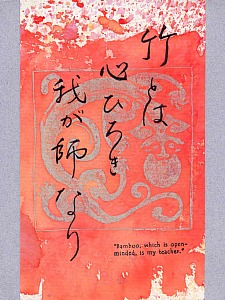 竹とは
心ひろき
我が師なり
"Bamboo, which is open-
minded, is my teacher."